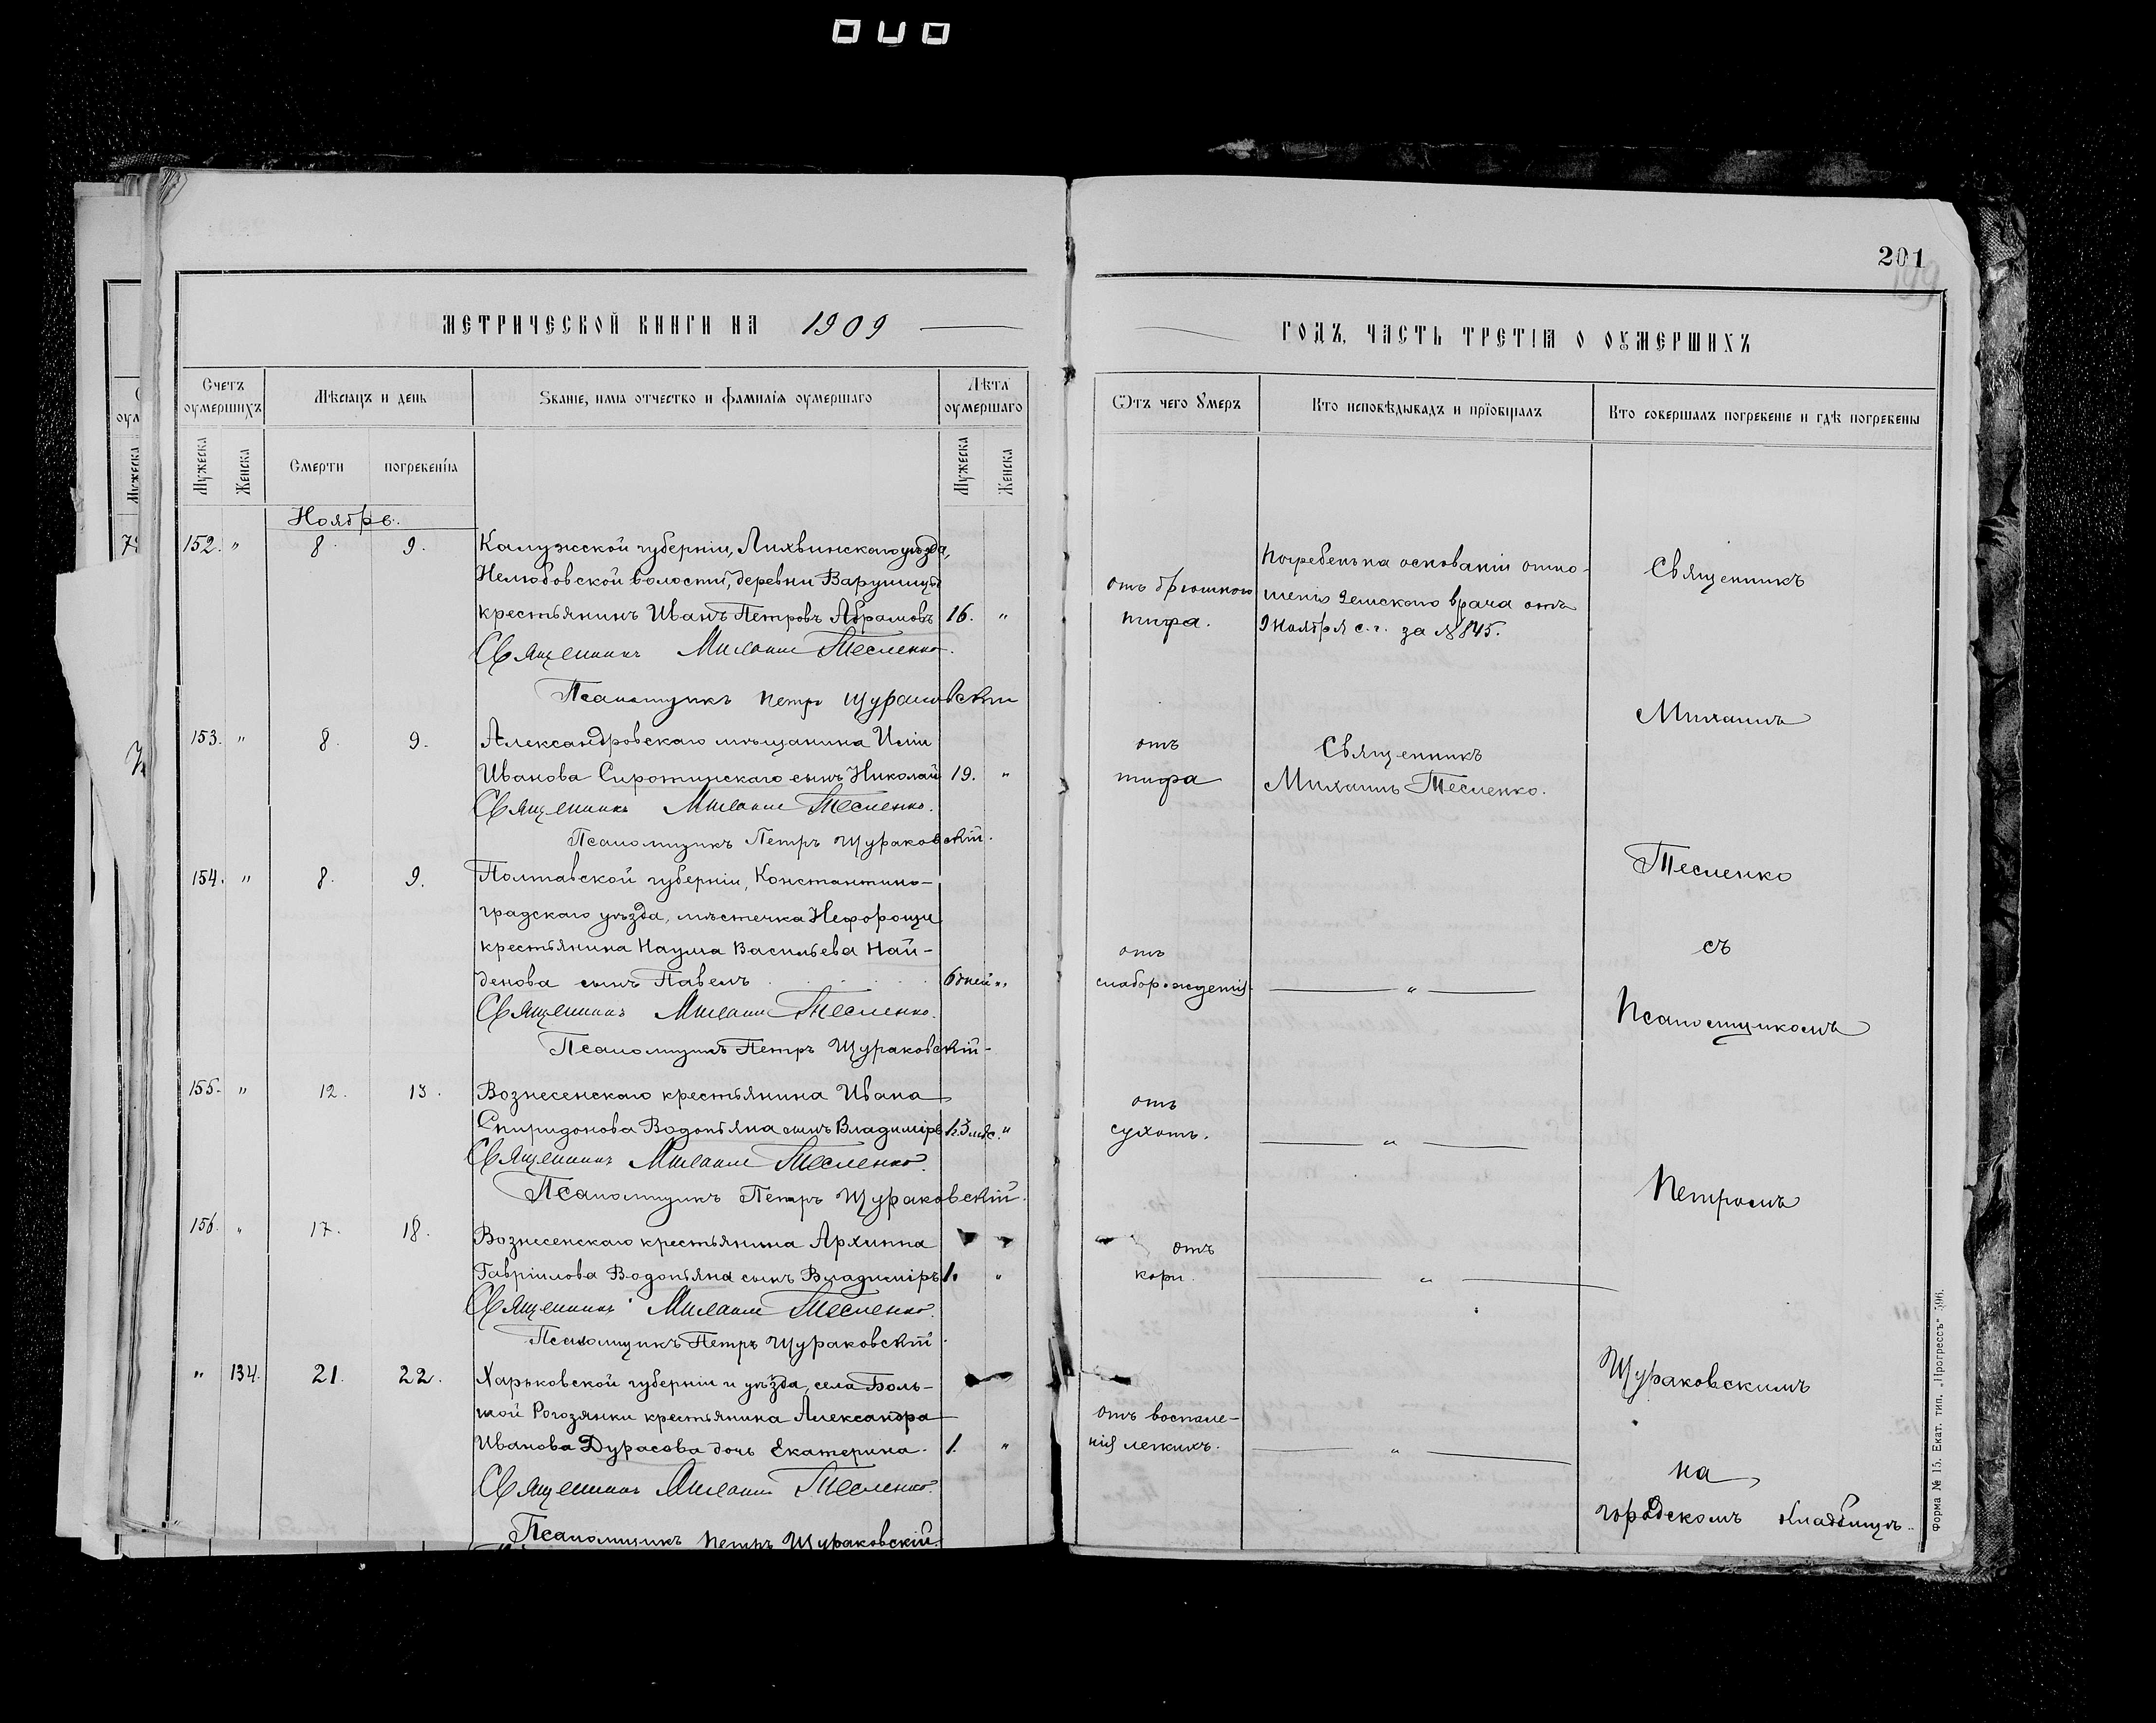 201
199
МЕТРИЧЕСКОЙ КНИГИ НА 1909
ГОДЪ, ЧАСТЬ ТРЕТІѦ О ОУМЕРШИХЪ
Счетъ оумершихъ
Мѣсяцъ и день
Званіе, имѧ отчество и фамиліѧ оумершаго
Лѣта оумершаго
Ѿтъ чего Умеръ
Кто исповѣдывалъ и прїобщалъ
Кто совершалъ погребеніе и гдѣ погребены
Мужеска
Женска
Смерти
погребенїѧ
Мужеска
Женска
Ноябрь.
152. " 8. 9. Калужской губерніи, Лихвинскаго уѣзда,
Нелюбовской волости, деревни Варушицы
крестьянинъ Иванъ Петровъ Абрамовъ 16. "
Священникъ Михаилъ Тесленко.
Псаломщикъ Петръ Щураковскій
отъ брюшного
тифа.
Погребенъ на основаніи отно-
шенія Земскаго врача отъ
9 Ноября с. г. за № 845.
153. " 8. 9. Александровскаго мѣщанина Иліи
Иванова Сиротинскаго сынъ Николай 19. "
Священникъ Михаилъ Тесленко.
Псаломщикъ Петръ Щураковскій.
отъ
тифа
Священникъ
Михаилъ Тесленко.
154. " 8. 9. Полтавской губерніи, Константино-
градскаго уѣзда, мѣстечка Нефорощи
крестьянина Наума Васильева Най-
денова сынъ Павелъ 6 дней "
Священникъ Михаилъ Тесленко.
Псаломщикъ Петръ Щураковскій.
отъ
слаборожденія
"
155. " 12. 13. Вознесенскаго крестьянина Ивана
Спиридонова Водопьяна сынъ Владиміръ мѣс. "
Священникъ Михаилъ Тесленко.
Псаломщикъ Петръ Щураковскій.
отъ
сухотъ.
"
156. " 17. 18. Вознесенскаго крестьянина Архиппа
Гавріилова Водопьяна сынъ Владиміръ 1. "
Священникъ Михаилъ Тесленко.
Псаломщикъ Петръ Щураковскій.
отъ
кори.
"
" 134. 21. 22. Харьковской губерніи и уѣзда, села Боль-
шой Рогозянки крестьянина Александра
Иванова Дурасова дочь Екатерина. 1. "
Священникъ Михаилъ Тесленко.
Псаломщикъ Петръ Щураковскій.
отъ воспале-
нія легкихъ.
"
Священникъ
Михаилъ
Тесленко
съ
Псаломщикомъ
Петромъ
Щураковскимъ
на
городскомъ кладбищѣ.
Форма № 15. Екат. тип. „Прогрессъ" 596.